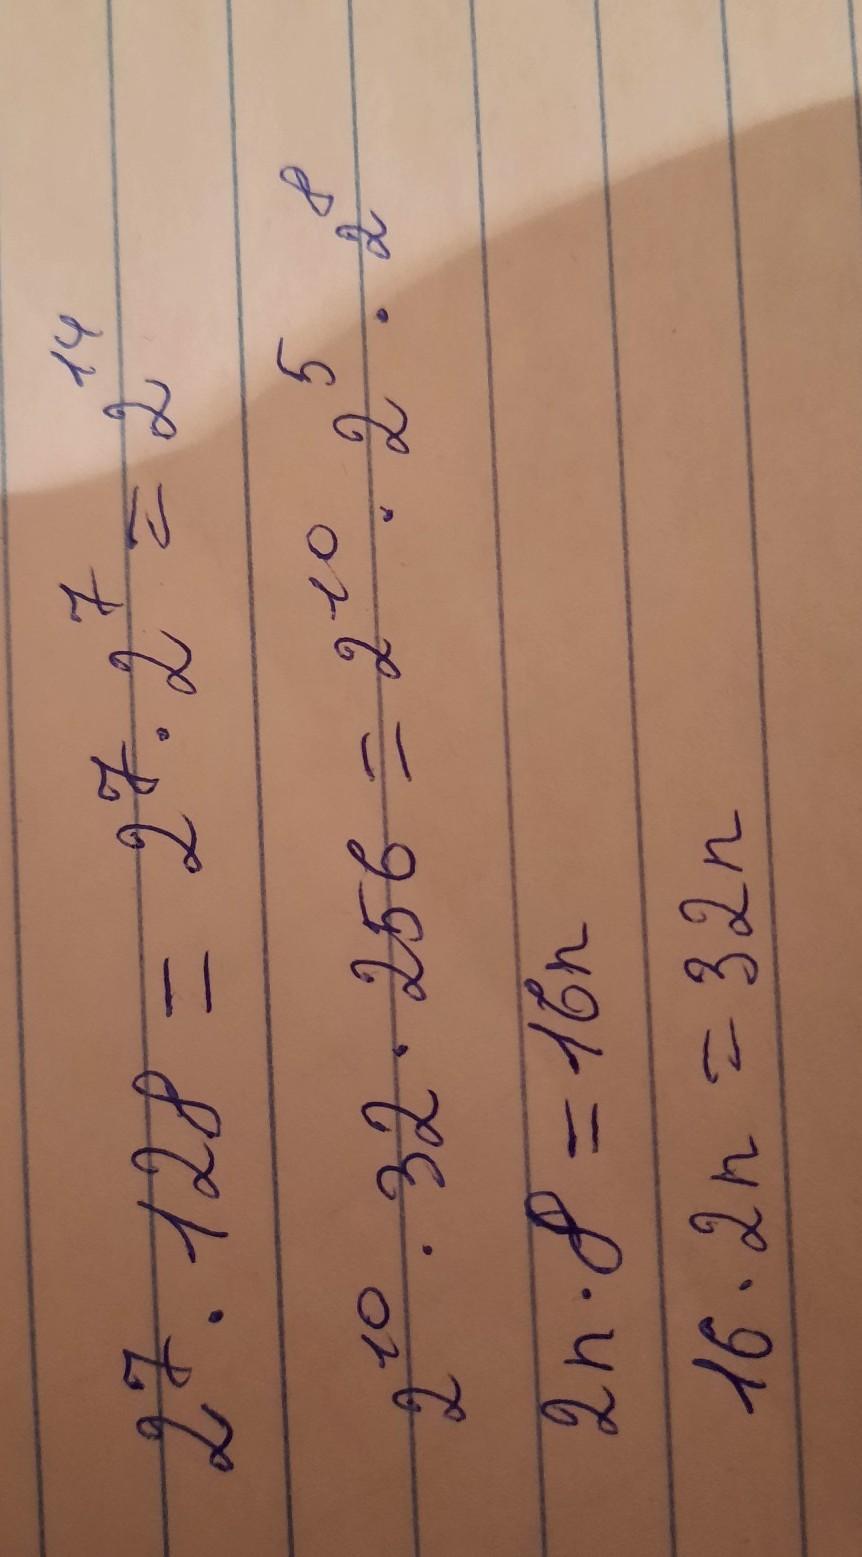 2⁷ · 128 = 2⁷ · 2⁷ = 2¹⁴
2¹⁰ · 32 · 256 = 2¹⁰ · 2⁵ · 2⁸
2n · 8 = 16n
16 · 2n = 32n